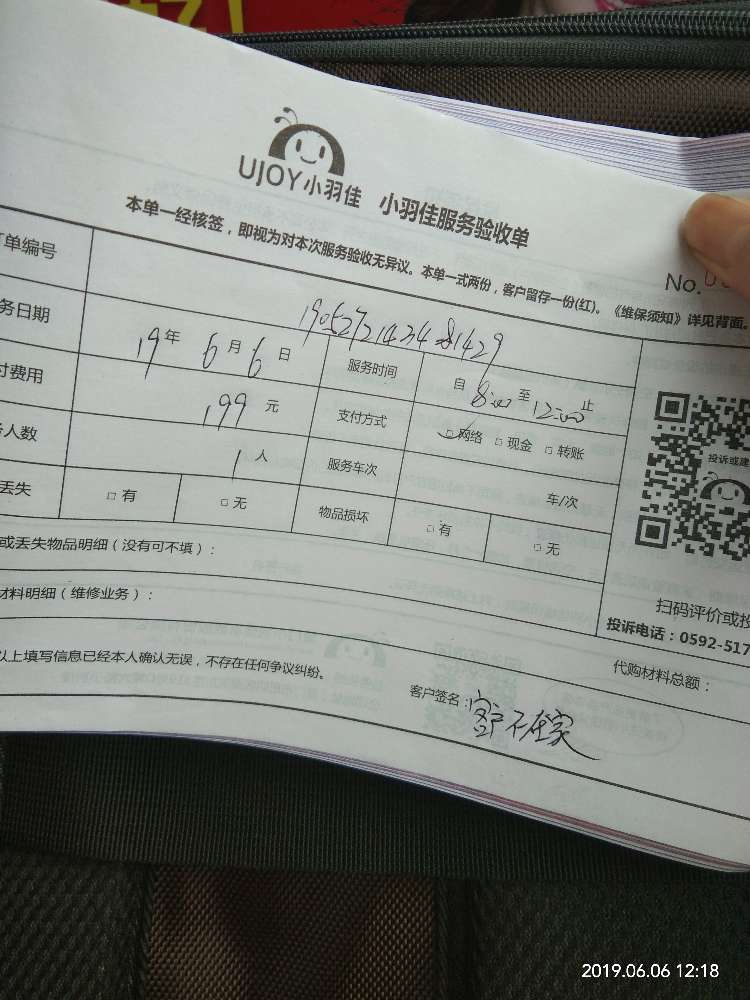 UJOY小羽佳 小羽佳服务验收单
本单一经核签，即视为对本次服务验收无异议。本单一式两份，客户留存一份(红)。《维保须知》详见背面。
No.0
单编号
务日期 19年 6月 6日 服务时间 自 8:00 至 12:00 止
付费用 199元 支付方式 ☑网络 □现金 □转账
人数 1人 服务车次 车/次
丢失 □有 □无 物品损坏 □有 □无
投诉或建
或丢失物品明细（没有可不填）：
材料明细（维修业务）：
扫码评价或投
投诉电话：0592-517
代购材料总额：
以上填写信息已经本人确认无误，不存在任何争议纠纷。
客户签名：客户不在家
2019.06.06 12:18